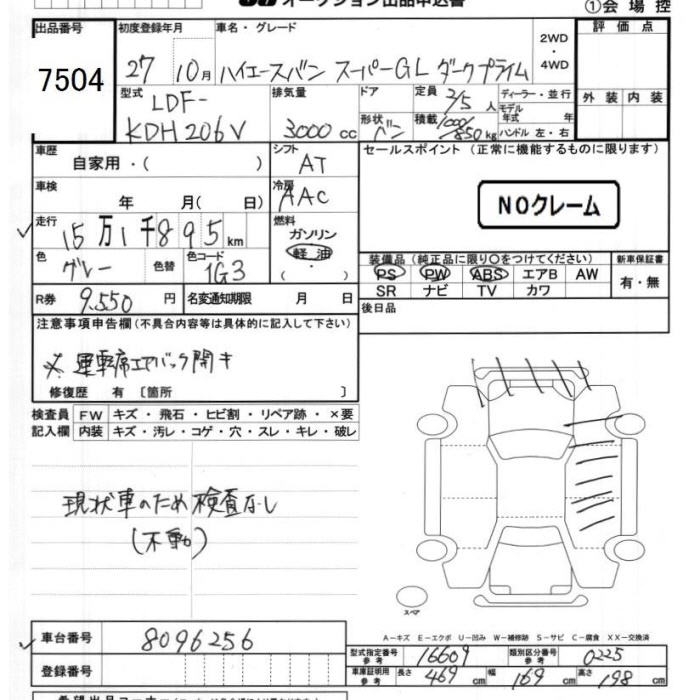 オークション出品申込書
①会場控
出品番号 初度登録年月 車名・グレード 評価点
7504 27 10月 ハイエースバン スーパーGL ダークプライム 2WD・4WD
型式 排気量 ドア 定員 2/5 人 ディーラー・並行 外装 内装
LDF-
KDH206V 3000cc 形状 バン 積載 1000/850kg モデル年式 年 ハンドル 左・右
車歴 シフト セールスポイント (正常に機能するものに限ります)
自家用・( ) AT
車検 冷房
年 月( 日) AAC NOクレーム
走行 燃料
15万1千895km ガソリン
色 色替 色コード 軽油 装備品 (純正品に限り○をつけてください) 新車保証書
グレー 1G3 ・( ) PS PW ABS エアB AW 有・無
SR ナビ TV カワ
R券 9.550円 名変通知期限 月 日 後日品
注意事項申告欄(不具合内容等は具体的に記入して下さい)
※ 運転席エアバック開き
修復歴 有 〔箇所 〕
検査員 FW キズ・飛石・ヒビ割・リペア跡・×要
記入欄 内装 キズ・汚レ・コゲ・穴・スレ・キレ・破レ
現状車のため検査なし
(不動)
スペア
A-キズ E-エクボ U-凹み W-補修跡 S-サビ C-腐食 XX-交換済
車台番号 8096256
型式指定番号 参考 16609 類別区分番号 参考 0225
登録番号 車庫証明用 参考 長さ 469cm 幅 169cm 高さ 198cm